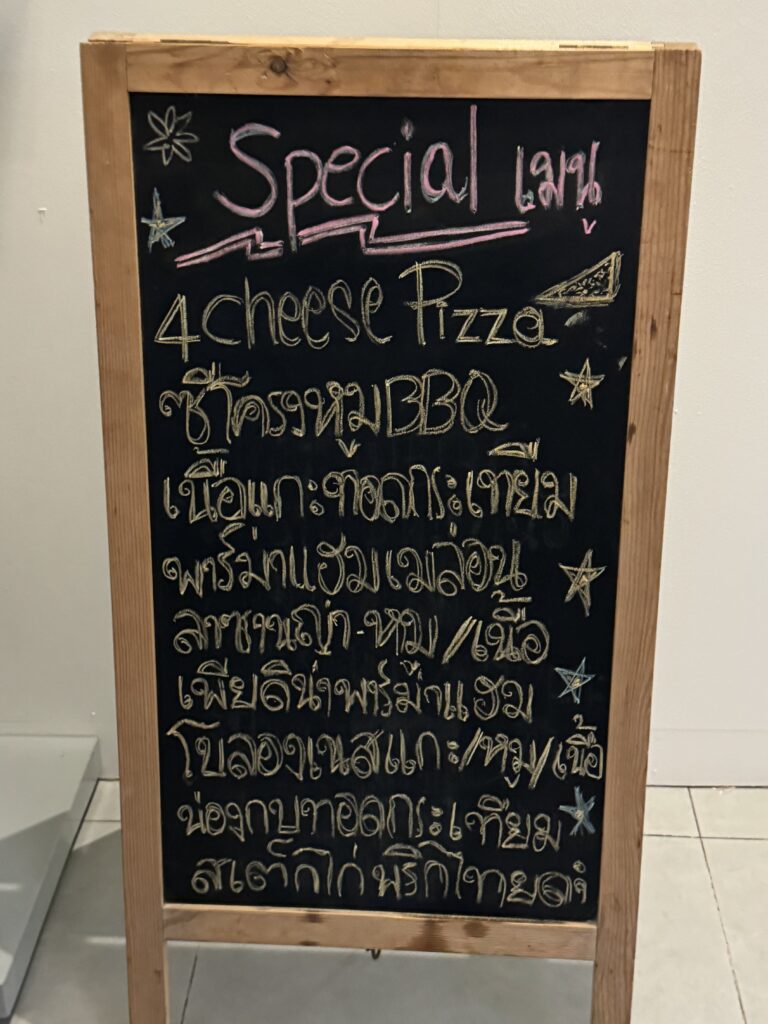 Special เมนู
4 cheese Pizza
ซี่โครงหมู BBQ
เนื้อแกะทอดกระเทียม
พาร์ม่าแฮมเมล่อน
ลาซานญ่า-หมู/เนื้อ
เพียดิน่าพาร์ม่าแฮม
โบลองเนสแกะ/หมู/เนื้อ
น่องกบทอดกระเทียม
สเต็กไก่พริกไทยดำ